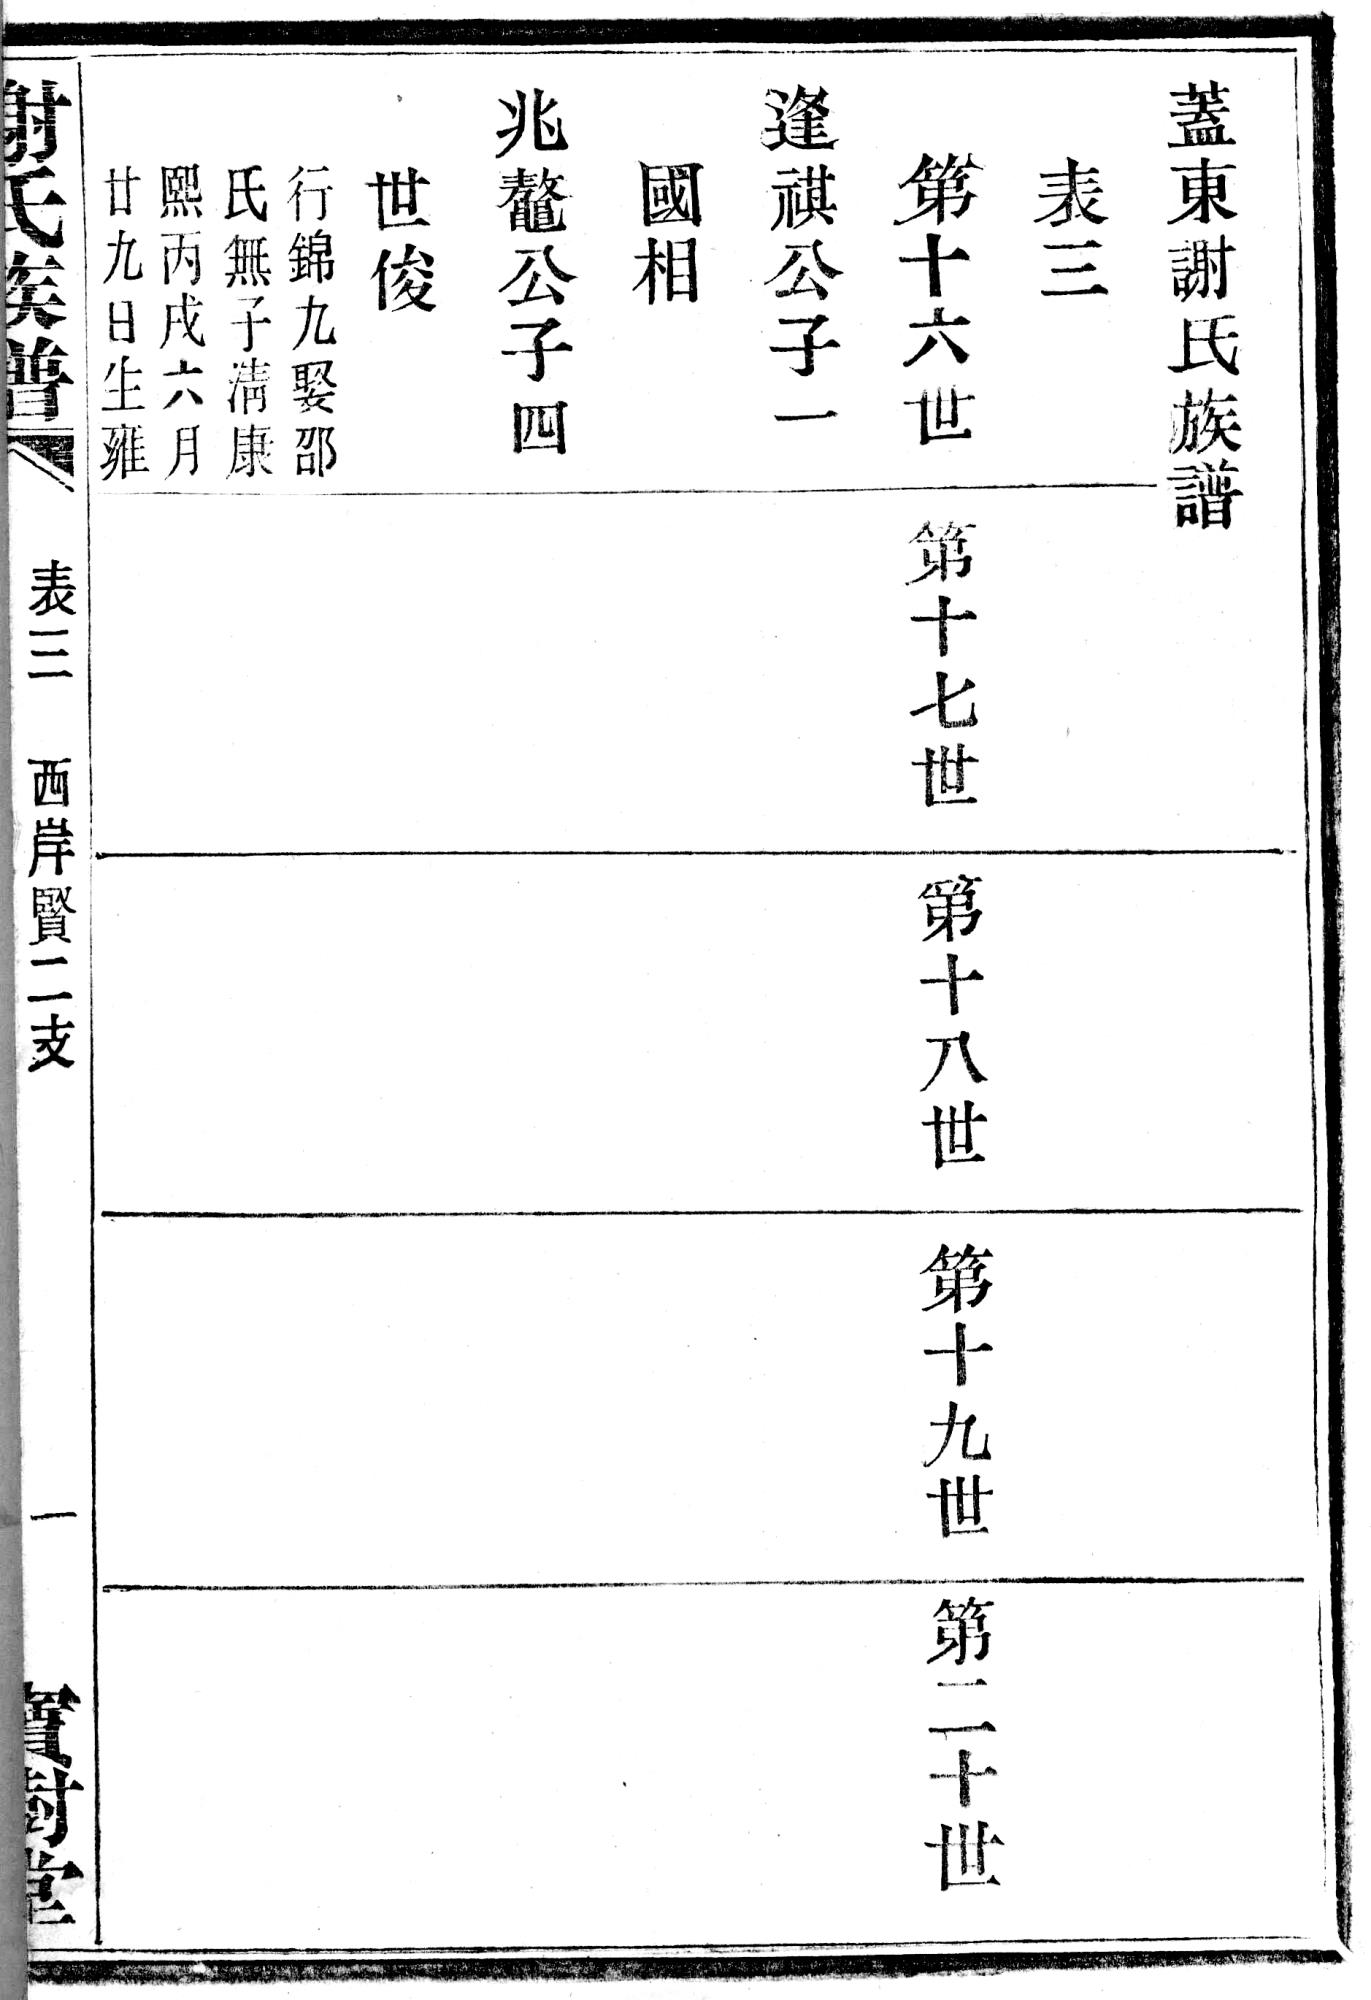 蓋東謝氏族譜
表三
第十六世
第十七世
第十八世
第十九世
第二十世
逢祺公子一
國相
兆鼇公子四
世俊
行錦九娶邵
氏無子清康
熙丙戌六月
廿九日生雍
謝氏族譜
表三
西岸賢二支
一
寶樹堂